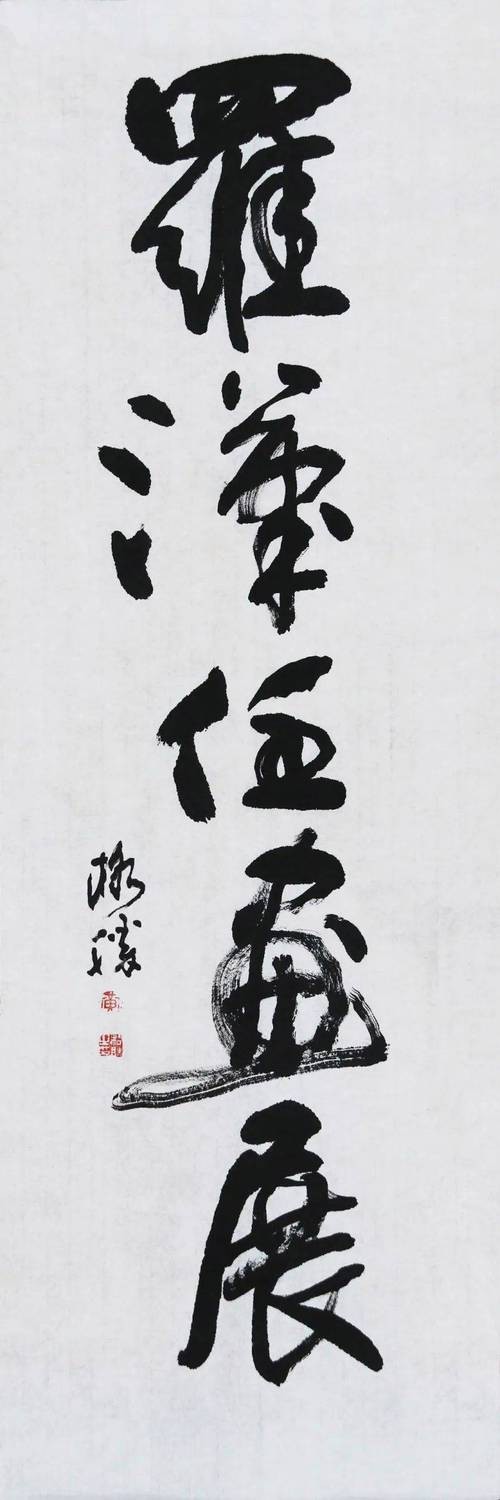 羅漢任畫展